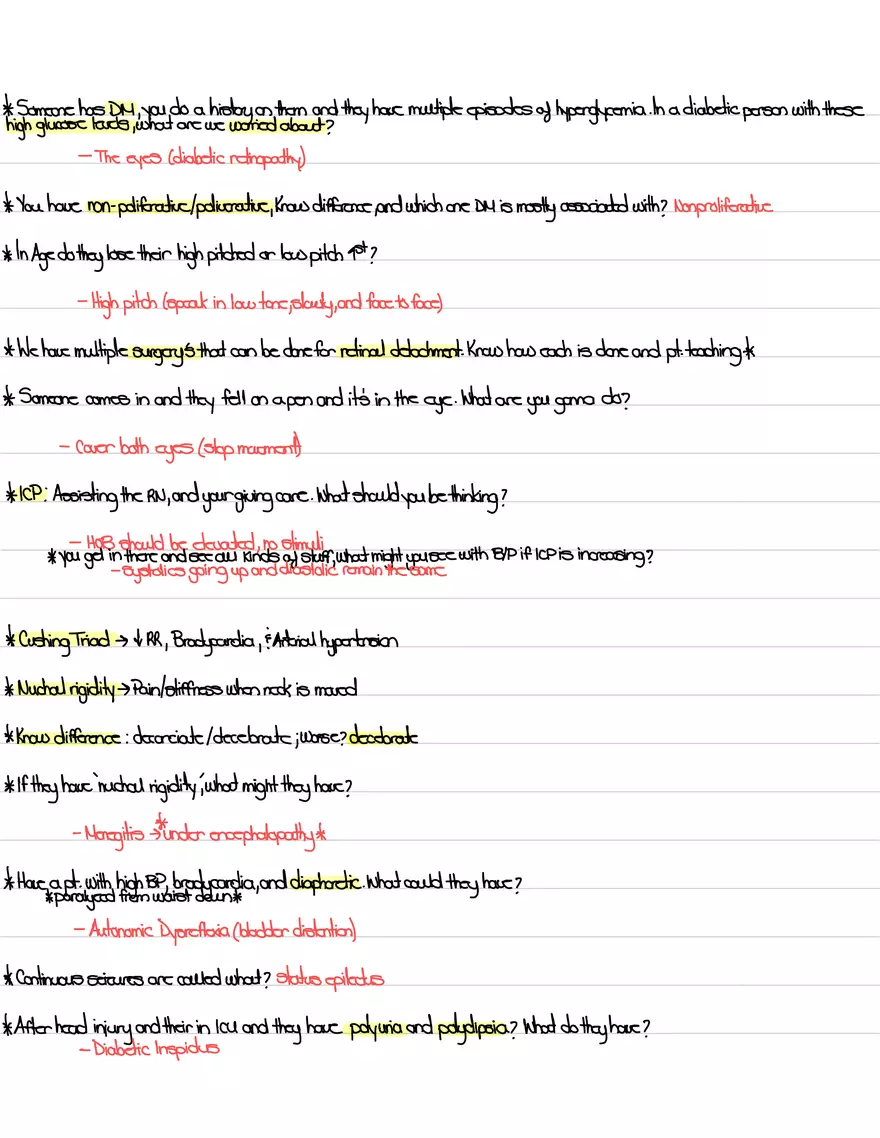 * Someone has DM, you do a history on them and they have multiple episodes of hyperglycemia. In a diabetic person with these
high glucose levels, what are we worried about?
- The eyes (diabetic retinopathy)
* You have non-poliferative/poliverative, Know difference, and which one DM is mostly associated with? Nonproliferative
* In Age do they lose their high pitched or low pitch 1st?
- High pitch (speak in low tone, slowly, and face to face)
* We have multiple surgery's that can be done for retinal detachment. Know how each is done and pt. teaching *
* Someone comes in and they fell on a pen and it's in the eye. What are you gonna do?
- Cover both eyes (stop movement)
* ICP: Assisting the RN, and your giving care. What should you be thinking?
- HOB should be elevated, no stimuli
* you get in there and see all kinds of stuff, what might you see with B/P if ICP is increasing?
- Systolics going up and diastolic remain the same
* Cushing Triad → ↓ RR, Bradycardia, & Arterial hypertension
* Nuchal rigidity → Pain/stiffness when neck is moved
* Know difference: decorticate/decebrate; worse? decebrate
* If they have "nuchal rigidity", what might they have?
- Menegitis → *under encephalopathy*
* Have a pt. with high BP, bradycardia, and diaphoretic. What could they have?
*paralyzed from waist down*
- Autonomic Dysreflexia (bladder distention)
* Continuous seizures are called what? Status epileptus
* After head injury and their in ICU and they have polyuria and polydipsia? What do they have?
- Diabetic Inspidus